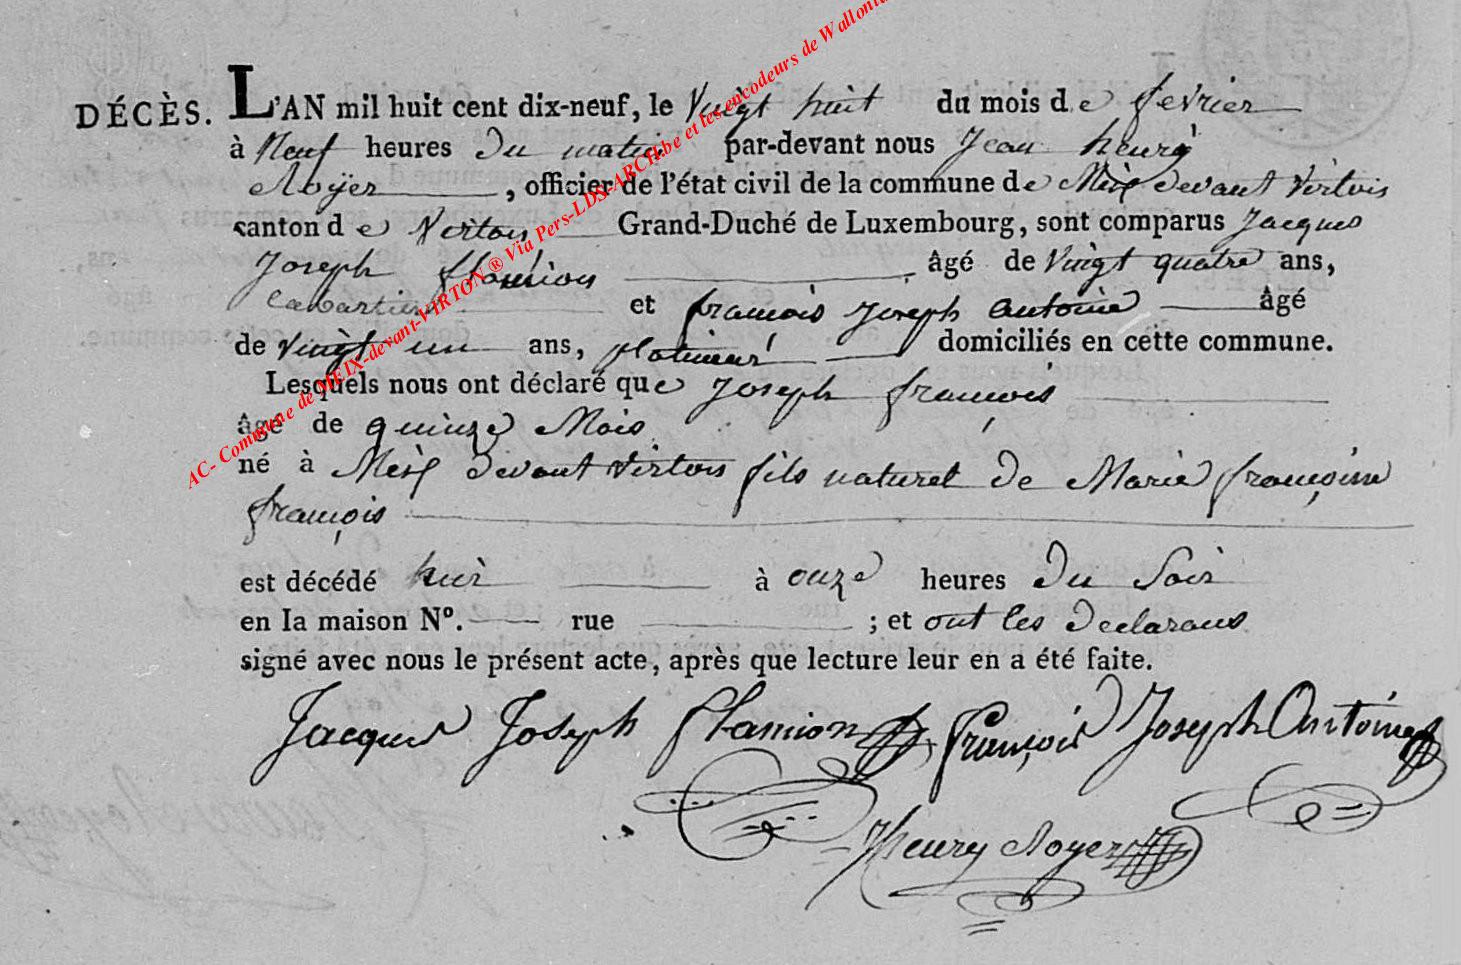 DÉCÈS. L'AN mil huit cent dix-neuf, le Vingt huit du mois de fevrier
à Neuf heures Du matin par-devant nous Jean henry
Noÿer, officier de l'état civil de la commune de Meix devant Virton
canton de Virton Grand-Duché de Luxembourg, sont comparus Jacques
Joseph flamion âgé de Vingt quatre ans,
cabartier et françois Joseph antoine âgé
de vingt un ans, platineur domiciliés en cette commune.
Lesquels nous ont déclaré que Joseph françois
âgé de quinze Mois
né à Meix devant virton fils naturel de Marie françoise
françois
est décédé hier à onze heures Du Soir
en la maison N°. rue ; et ont les Declarans
signé avec nous le présent acte, après que lecture leur en a été faite.
Jacques Joseph flamion françois Joseph Antoine
JHenry Noyer
AC- Commune de MEIX-devant-VIRTON ® Via Pers-LDS-ARCH.be et les encodeurs de Wallonie